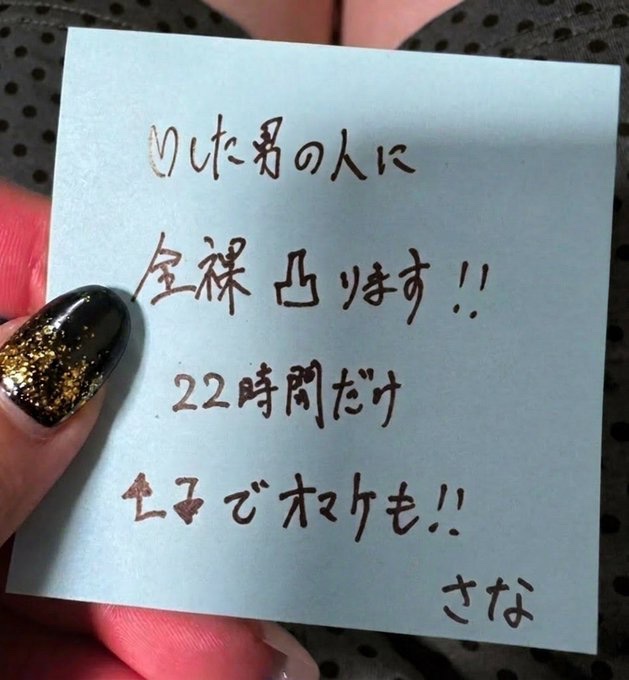 ♡した男の人に
全裸凸ります!!
22時間だけ
🔁でオマケも!!
さな